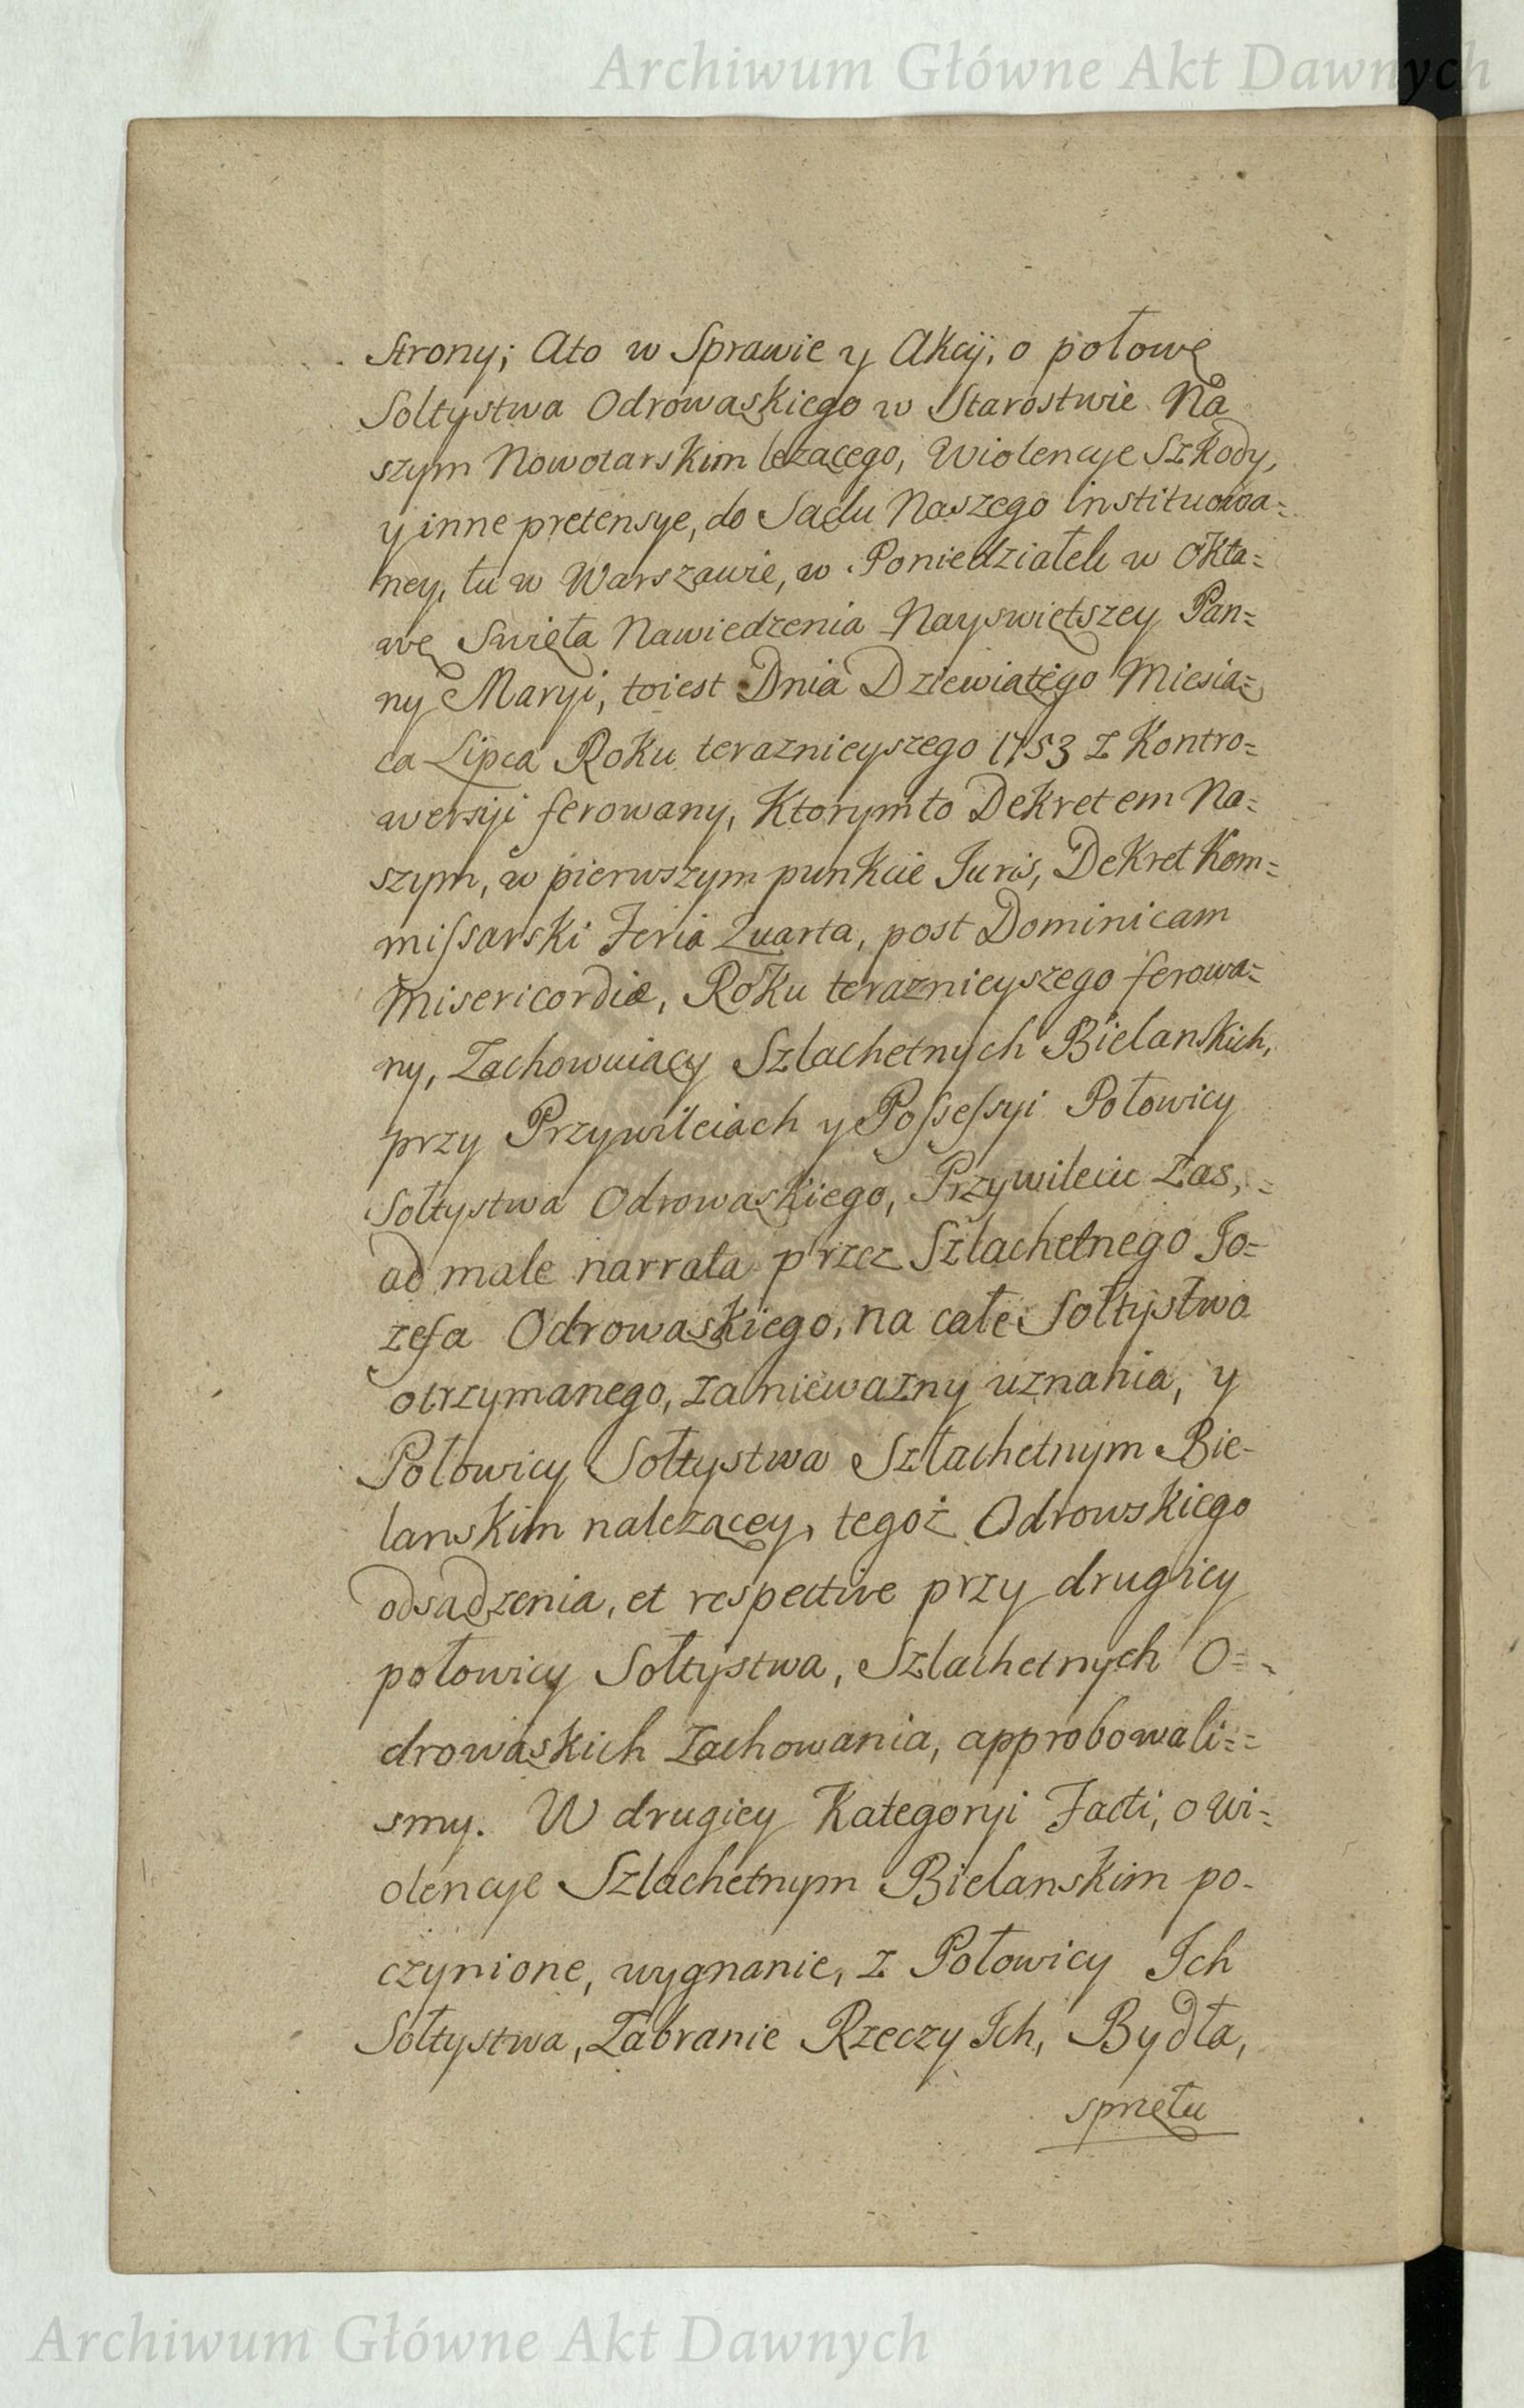 Archiwum Główne Akt Dawnych
Strony; Ato w Sprawie y Akcij, o połowę
Soltystwa Odrowąskiego w Starostwie Na
szym Nowotarskim lezącego, Wiolencye Szkody,
y inne pretensye, do Sądu Naszego instituowa=
ney, tu w Warszawie, w Poniedziałek w Okta=
wę Swięta Nawiedzenia Nayswiętszey Pan=
ny Maryi, toiest Dnia Dziewiątego Miesią=
ca Lipca Roku teraznieyszego 1753 z Kontro=
wersyi ferowany, Ktorymto Dekretem Na=
szym, w pierwszym punkcie Juris, Dekret Kom=
missarski Feria Quarta, post Dominicam
Misericordiæ, Roku teraznieyszego ferowa=
ny, Zachowuiący Szlachetnych Bielanskich,
przy Przywileiach y Possessyi Połowicy
Sołtystwa Odrowąskiego, Przywileie Zas, =
ad male narrata przez Szlachetnego Jo=
zefa Odrowąskiego, na całe Sołtystwo
otrzymanego, za niewazny uznania, y
Połowicy Sołtystwa Szlachetnym Bie-
lanskim nalezącey, tegoż Odrowskiego
odsądzenia, et respective przy drugiey
połowicy Sołtystwa, Szlachetnych O=
drowąskich zachowania, approbowali==
smy. W drugiey Kategoryi Facti, o Wi=
olencye Szlachetnym Bielanskim po-
czynione, wygnanie, z Połowicy Ich
Sołtystwa, Zabranie Rzeczy Ich, Bydła,
sprzętu
Archiwum Główne Akt Dawnych